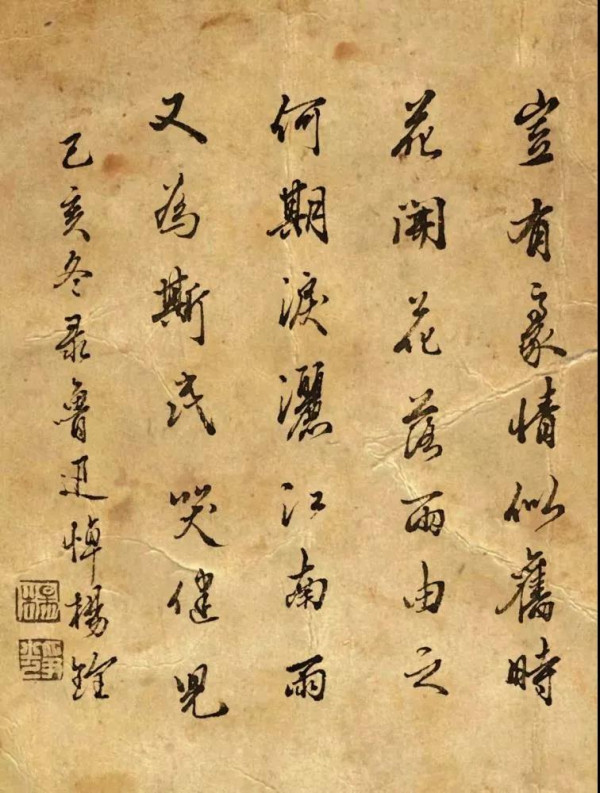 豈有豪情似舊時
花開花落兩由之
何期淚灑江南雨
又為斯民哭健兒
己亥冬录魯迅悼楊銓